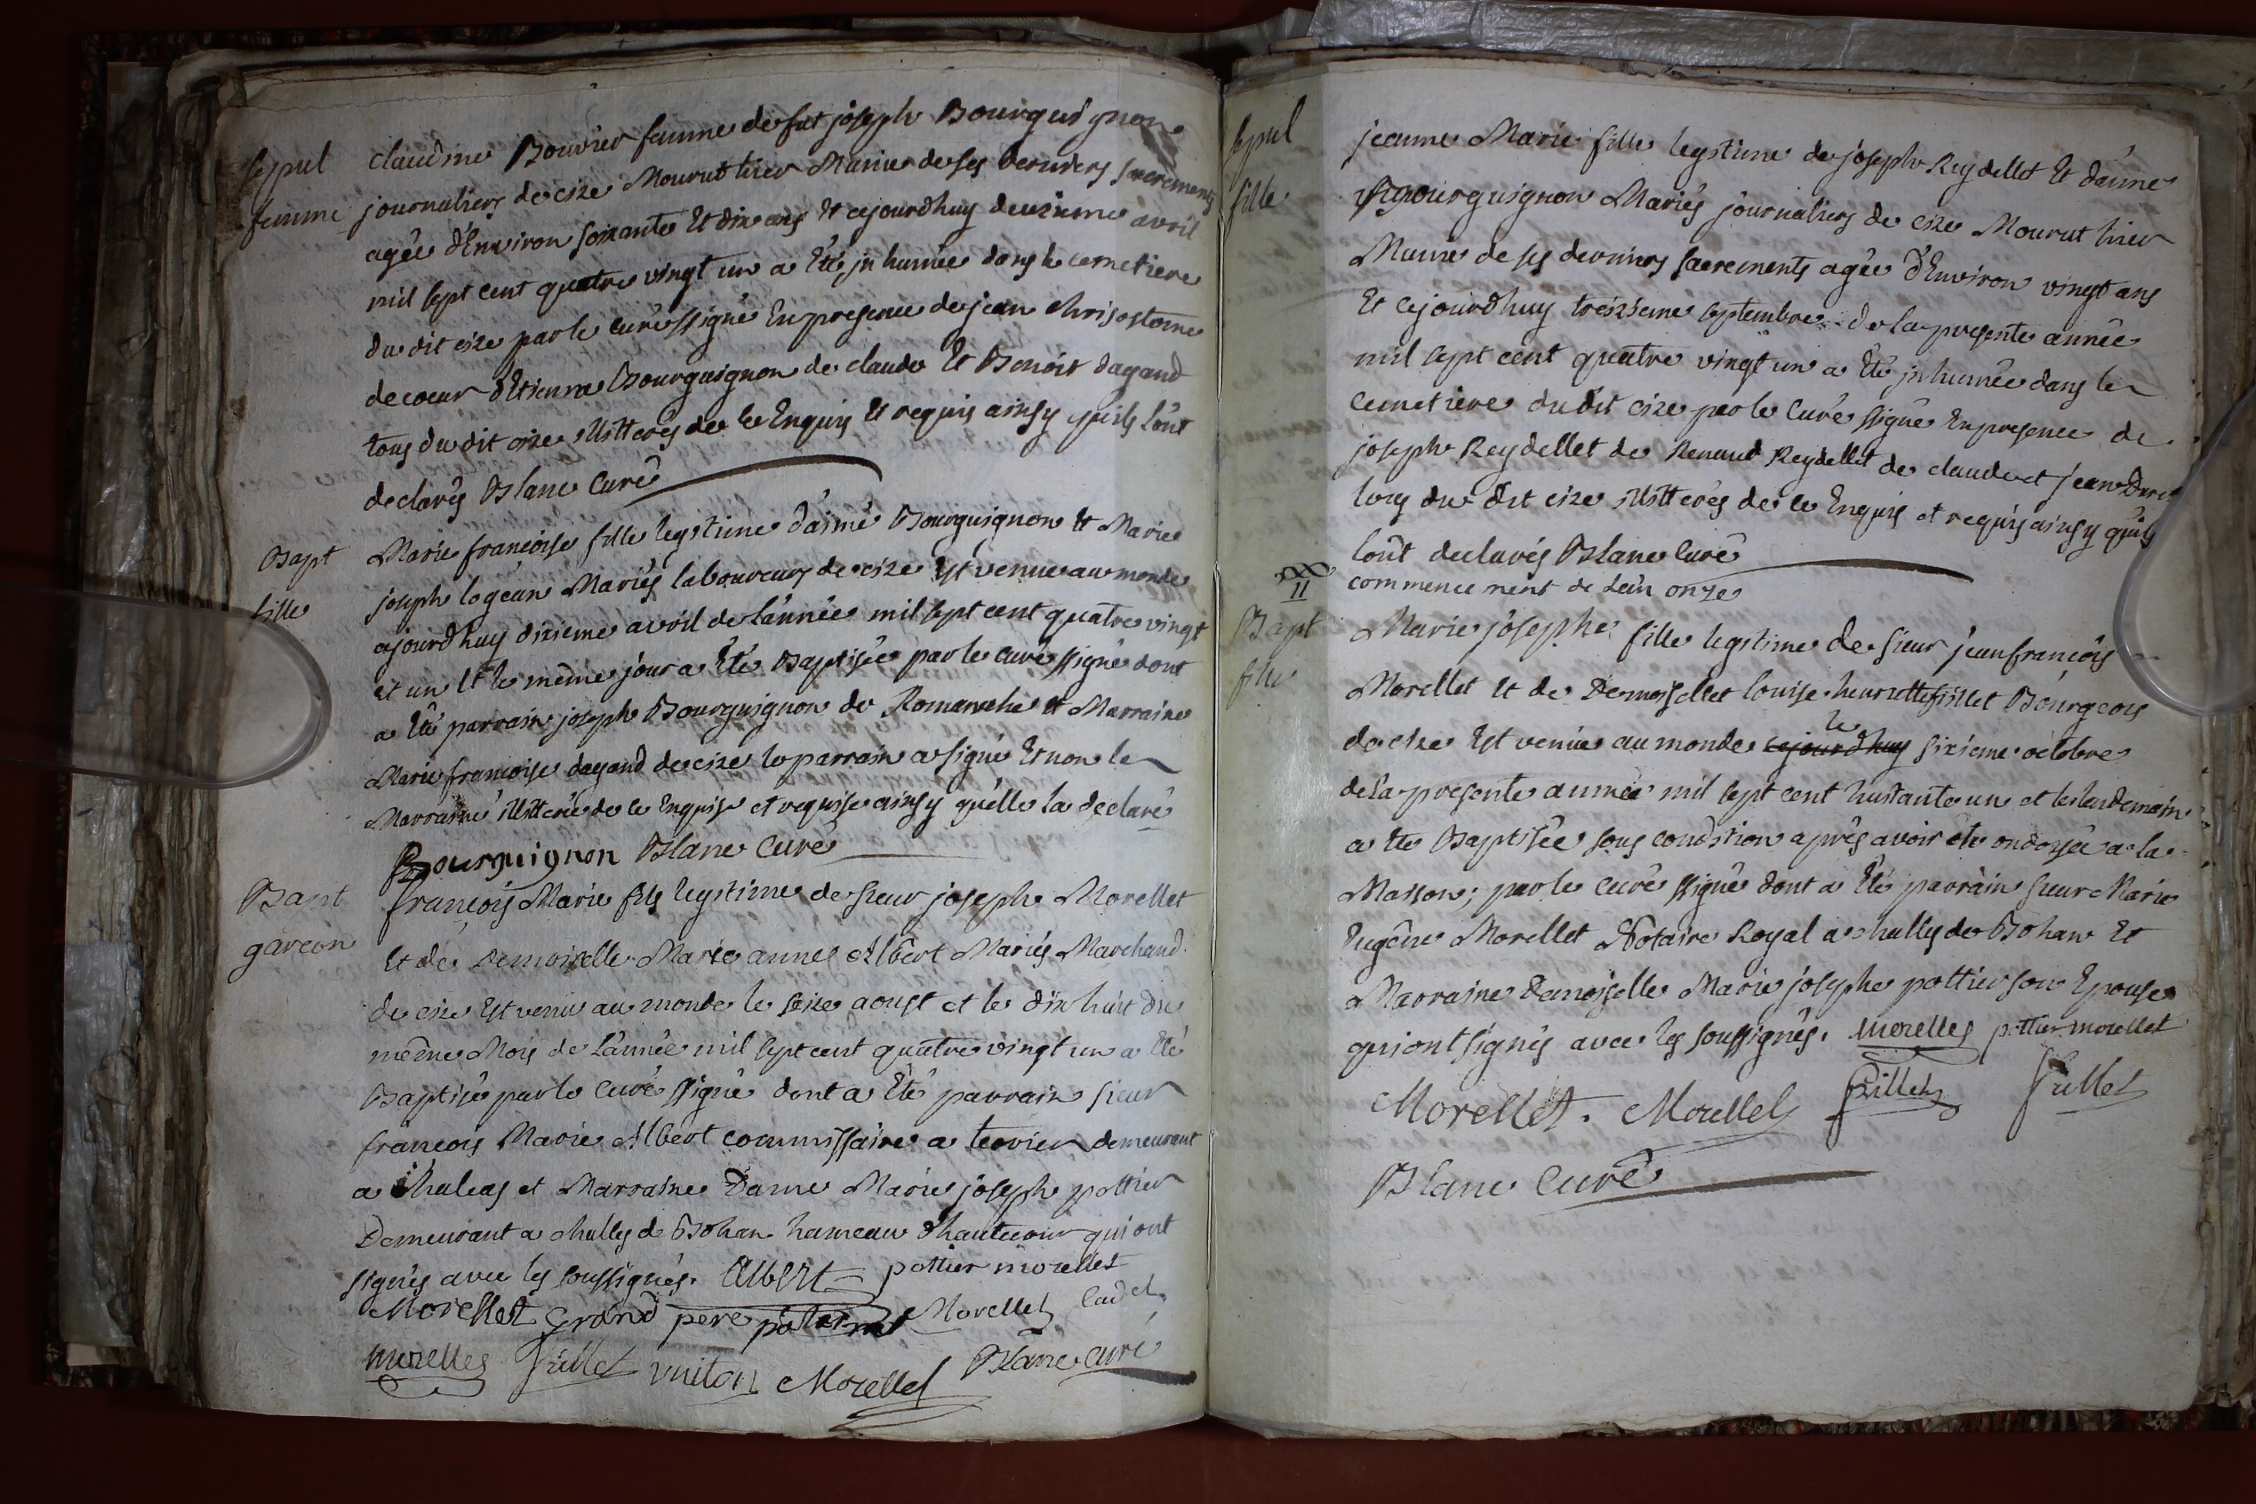 sepul
femme
claudine Bouvier femme de fut joseph Bourguignon
journaliers de cize Mourut hier Munie de ses derniers sacrements
agée d'Environ soixante Et dix ans Et cejourdhuy deuxieme avril
mil sept cent quatre vingt un a Eté inhumée dans le cemetiere
du dit cize par le curé ssigné En presence de jean chrisostome
de coeur d'Etienne Bourguignon de claude Et Benoit dagand
tous du dit cize illitterés de ce Enquis Et requis ainsy qu'ils l'ont
declarés Blanc Curé
Bapt
fille
Marie francoise fille legitime d'aimé Bourguignon Et Marie
joseph logean Mariés laboureurs de cize Est venue au monde
ajourdhuy dixieme avril de l'année mil sept cent quatre vingt
et un Et le même jour a Eté Baptisée par le curé ssigné dont
a Eté parrain joseph Bourguignon de Romaneche Et Marraine
Marie francoise dagand de cize le parrain a signé Et non la
Marraine illitterée de ce Enquise et requise ainsy qu'elle la declaré
Bourguignon Blanc Curé
Bapt
garcon
francois Marie fils legitime de sieur joseph Morellet
Et de Demoiselle Marie anne Albert Mariés Marchand
de cize Est venu au monde le seize aoust et le dix huit du
même Mois de l'année mil sept cent quatre vingt un a Eté
Baptisé par le curé ssigné dont a Eté parrain sieur
francois Marie Albert commissaire a terrier demeurant
a Chaleas et Marraine Dame Marie joseph pottier
Demeurant a challes de Bohan hameau d'hautecour qui ont
signés avec les soussignés. Albert pottier morellet
Morellet Grand pere paternel Morellet Cadet
Morellet fillet vuiton Morellet Blanc Curé
sepul
fille
jeanne Marie fille legitime de joseph Reydellet Et d'aime
Bourguignon Mariés journaliers de cize Mourut hier
Munie de ses derniers sacrements agée d'Environ vingt ans
Et cejourdhuy treizieme septembre de la presente année
mil sept cent quatre vingt un a Eté inhumée dans le
cemetiere du dit cize par le Curé ssigné En presence de
joseph Reydellet de Renaud Reydellet de claude et jean
tous du dit cize illitterés de ce Enquis et requis ainsy qu'ils
l'ont declarés Blanc Curé
11
commencement de l'an onze
Bapt
fille
Marie josephe fille legitime de sieur jean francois
Morellet Et de Demoisellet louise henriette fillet Bourgeois
le
de cize Est venüe au monde cejourdhuy sixieme octobre
de la presente année mil sept cent huitante un et le lendemain
a Eté Baptisée sous condition après avoir eté ondoyée a la
Maison; par le curé ssigné dont a Eté parrain sieur Marie
Eugêne Morellet Notaire Royal a challes de Bohan Et
Marraine Demoiselle Marie josephe pottier son Epouse
qui ont signés avec les soussignés. Morellet pottier morellet
Morellet. Morellet fillet fillet
Blanc Curé